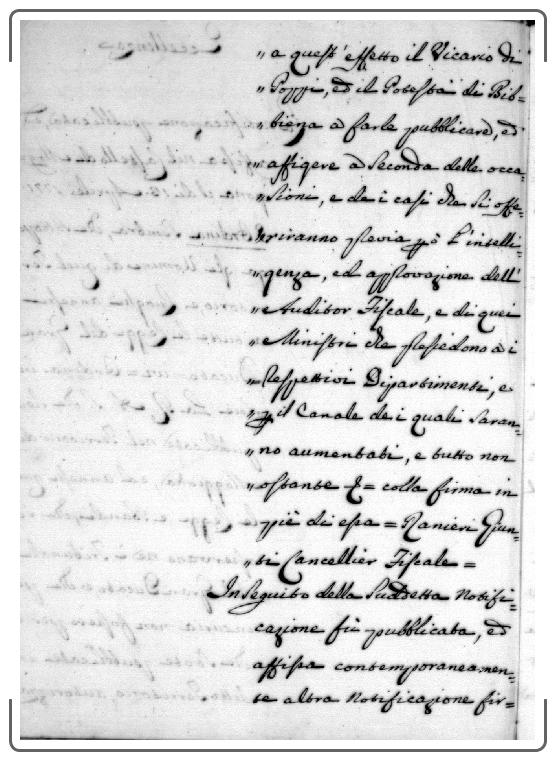 „ a quest' effetto il Vicario di
„ Poppi, ed il Potestà di Bib=
„ biena a farle pubblicare, ed
„ affigere a seconda delle occa=
„ sioni, e dei casi che si offe=
„ riranno previa però l'intelli=
„ genza, ed approvazione dell'
„ Auditor Fiscale, e di quei
„ Ministri che presiedono ai
„ respettivi Dipartimenti, e
„ p. il Canale dei quali saran=
„ no aumentati, e tutto non
„ ostante &= colla firma in
„ piè di essa = Ranieri Giun=
„ ti Cancellier Fiscale =
In seguito della suddetta Notifi=
cazione fù pubblicata, ed
affissa contemporaneamen=
te altra Notificazione fir=